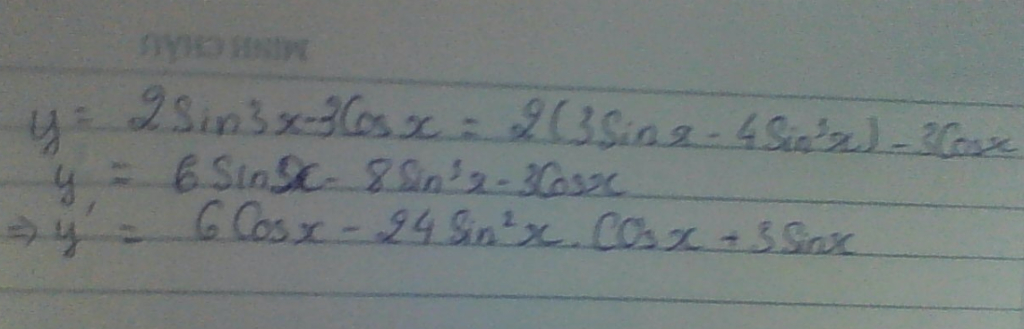 MINH CHAU
y = 2Sin3x-3Cosx = 2(3Sinx - 4Sin³x) - 3Cosx
y = 6Sinx - 8Sin³x - 3Cosx
⇒ y' = 6Cosx - 24Sin²x.Cosx + 3Sinx